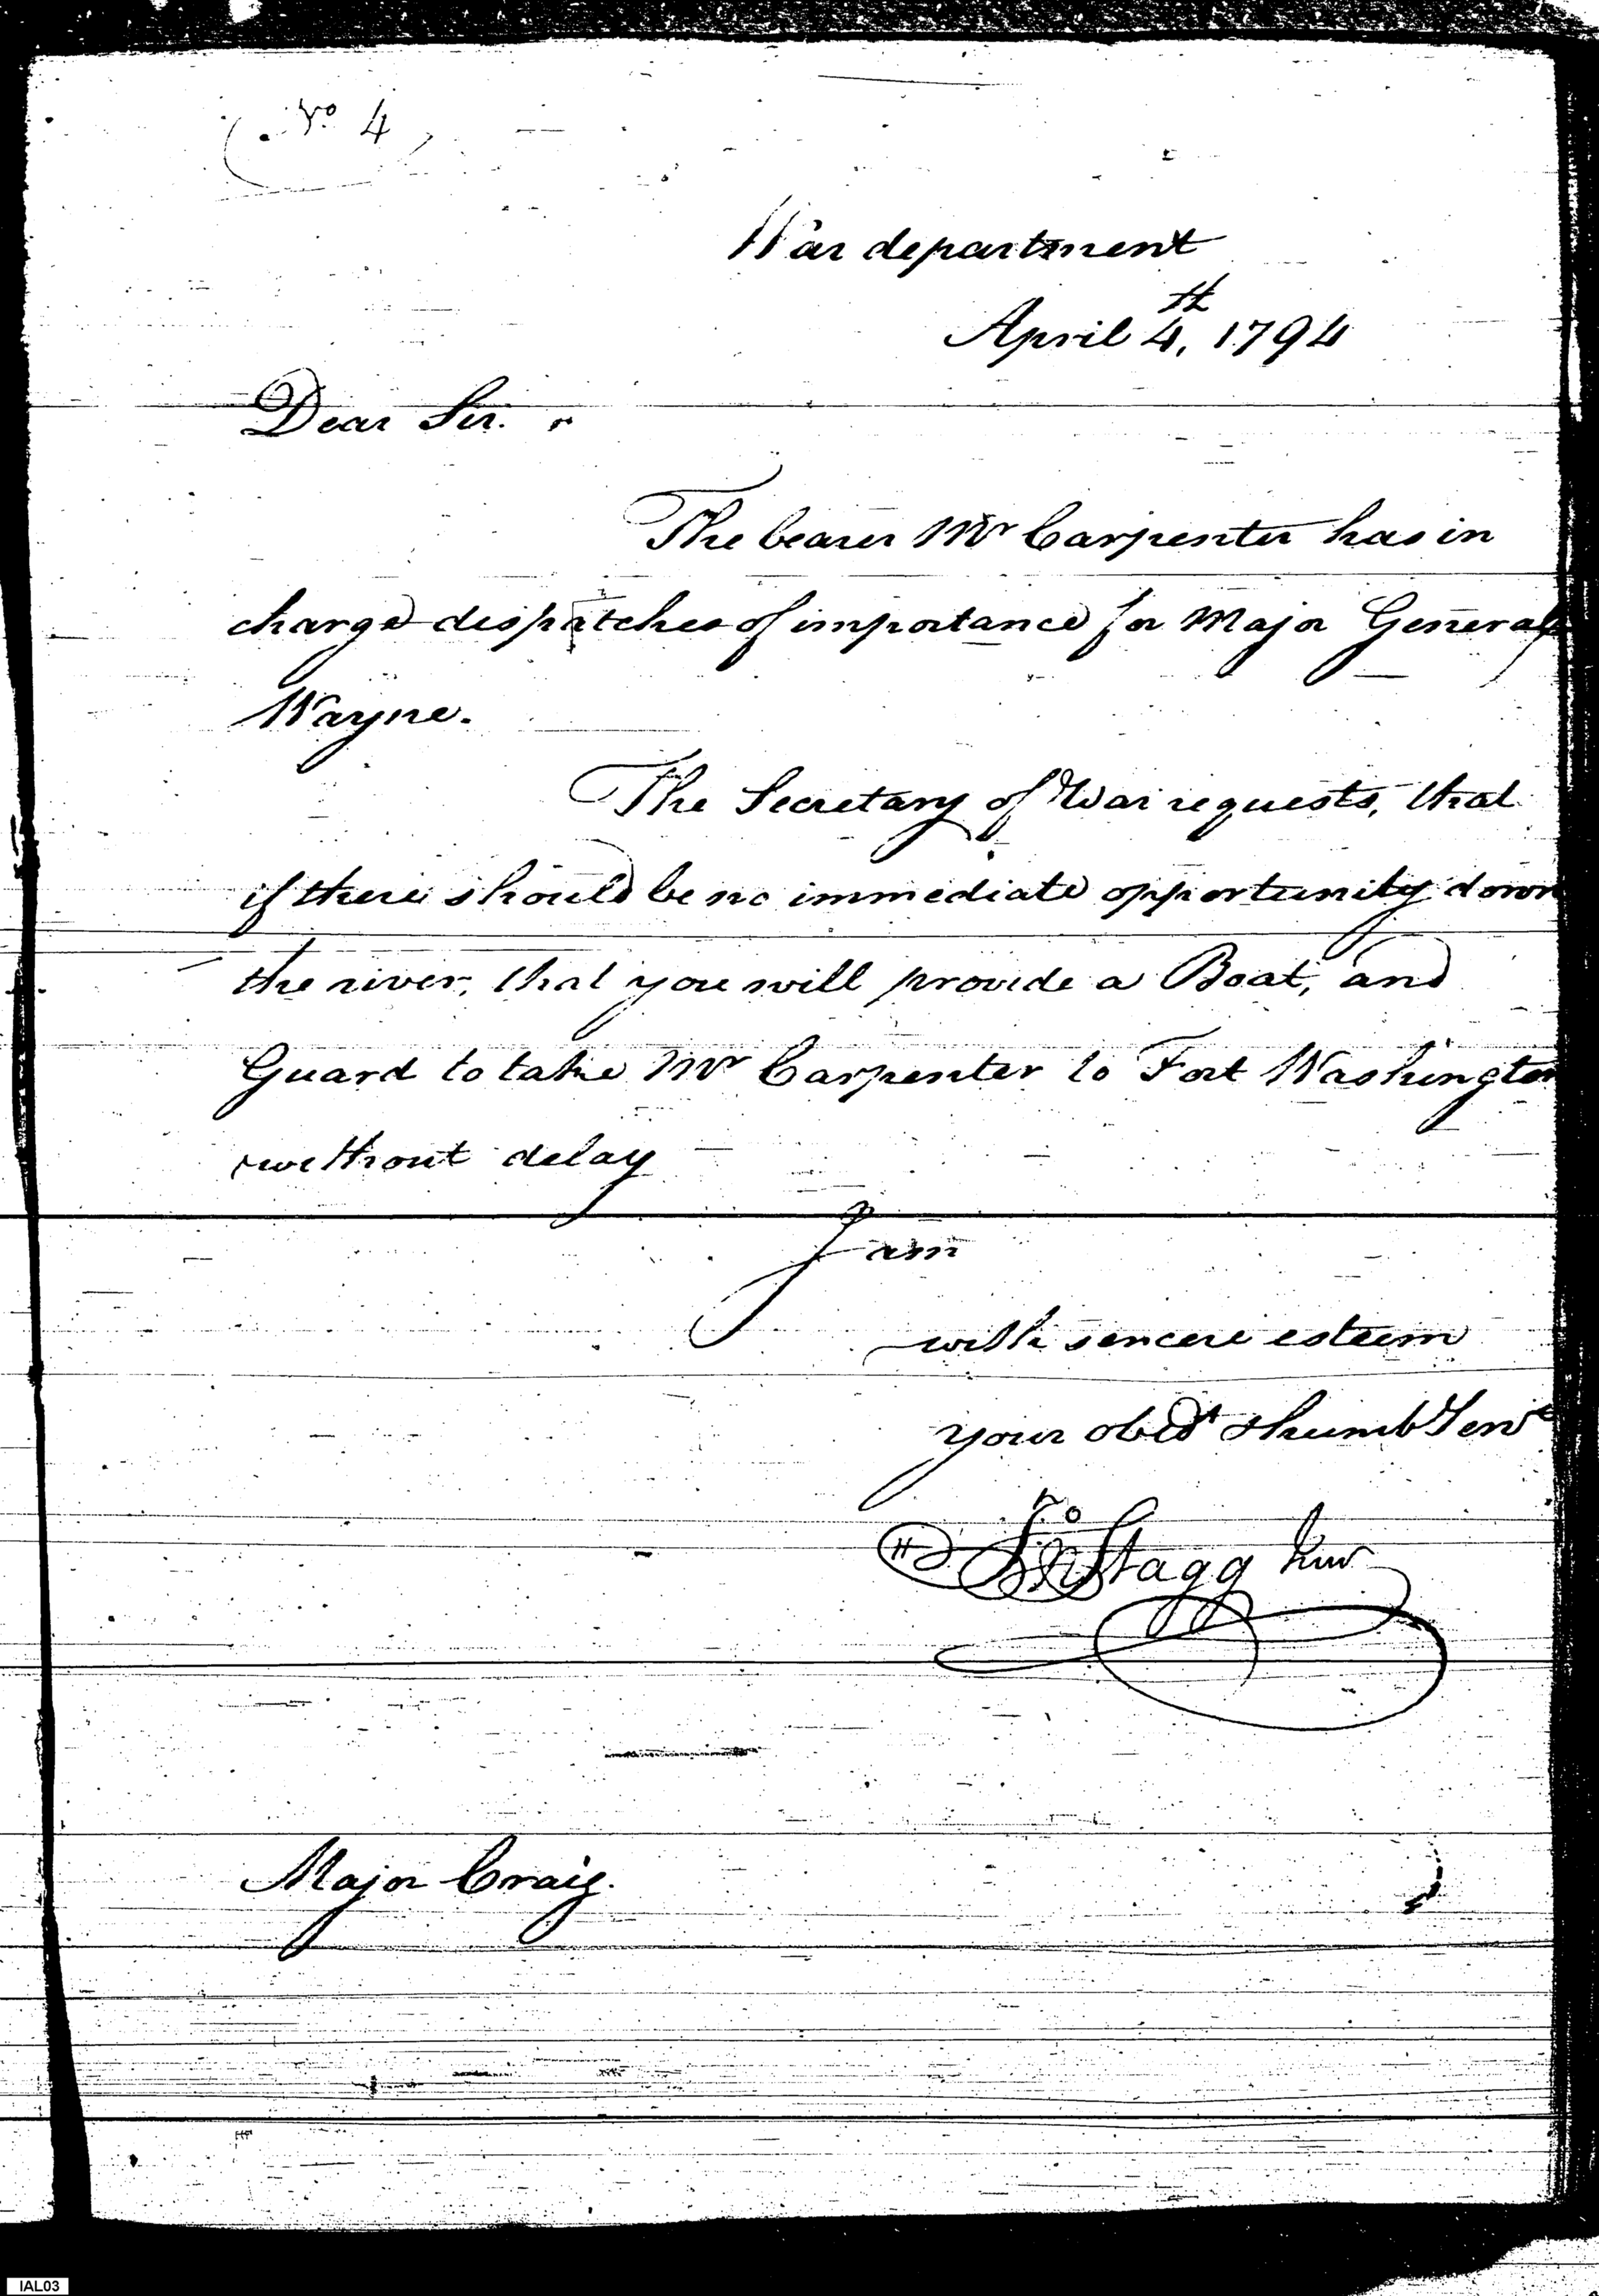 No 4
War department
April 4th, 1794
Dear Sir.
The bearer Mr Carpenter has in
charge dispatches of importance for Major General
Wayne.
The Secretary of War requests, that
if there should be no immediate opportunity down
the river, that you will provide a Boat, and
Guard to take Mr Carpenter to Fort Washington
without delay
I am
with sincere esteem
your obedt & humb Servt
Jno Stagg Junr
Major Craig.
IAL03